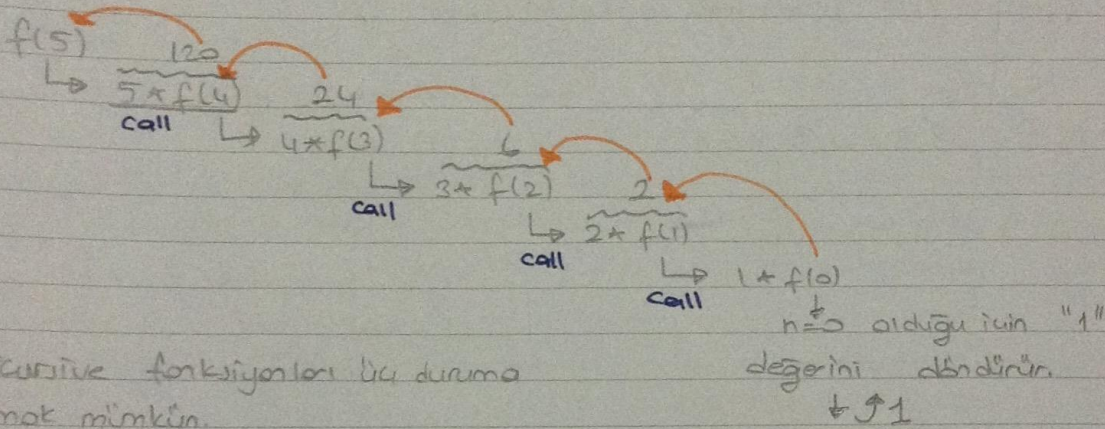 f(5)
120
5*f(4)
call
24
4*f(3)
call
6
3* f(2)
call
2
2* f(1)
call
1* f(0)
n=0 olduğu için "1"
değerini döndürür.
1
cursive fonksiyonları üç duruma
mak mümkün.